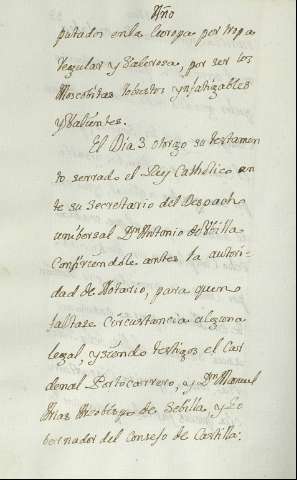 Año
putados en la Europa por tropa
regular y Valerosa, por ser los
Moscobitas robustos ynfatigables
y Valientes.
El Dia 3 otorgo su testamen
to serrado el Rey Catholico an
te su Secretario del Despacho
unibersal Dn Antonio de Ubilla
Confiriendole antes la autori-
dad de Notario, para que no
faltase Circustancia alguna
legal, y siendo testigos el Car
denal Portocarrero, y Dn Manuel
Arias Arzobispo de Sebilla y Go
bernador del Consejo de Castilla.